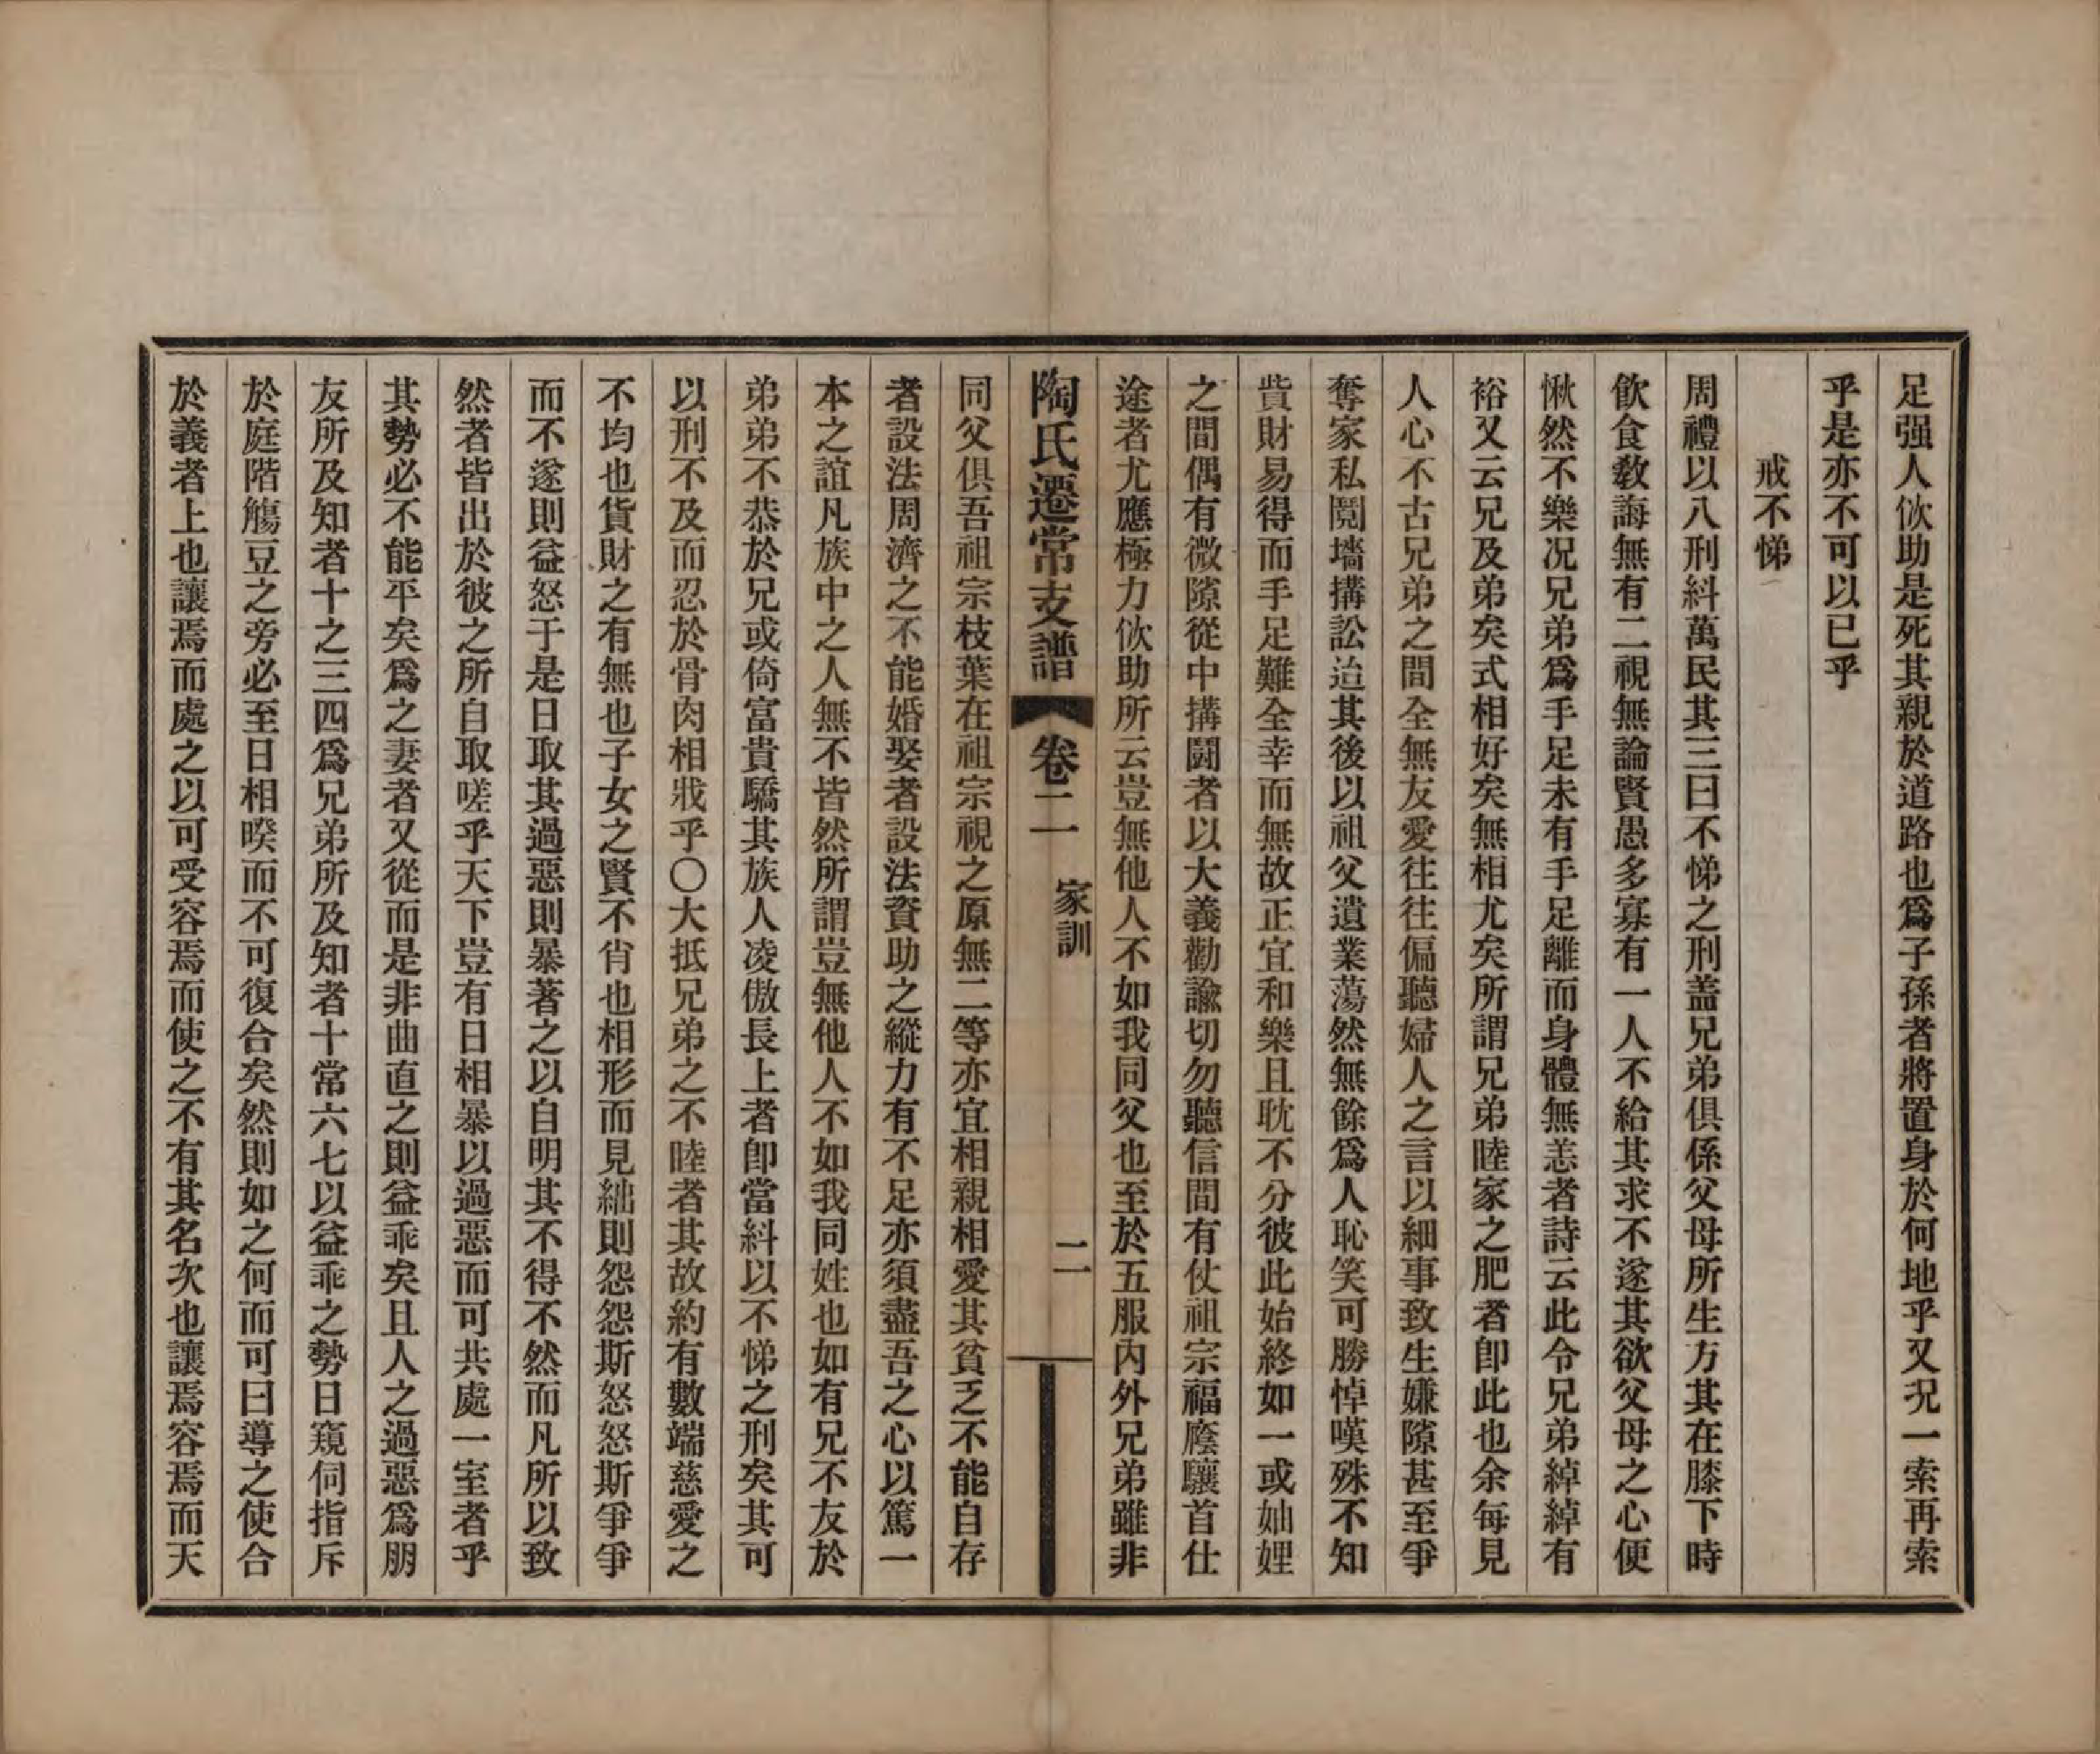 足强人佽助是死其親於道路也爲子孫者將置身於何地乎又况一索再索
乎是亦不可以已乎
戒不悌
周禮以八刑糾萬民其三曰不悌之刑蓋兄弟俱係父母所生方其在膝下時
飮食敎誨無有二視無論賢愚多寡有一人不給其求不遂其欲父母之心便
愀然不樂况兄弟爲手足未有手足離而身體無恙者詩云此令兄弟綽綽有
裕又云兄及弟矣式相好矣無相尤矣所謂兄弟睦家之肥者卽此也余每見
人心不古兄弟之間全無友愛往往偏聽婦人之言以細事致生嫌隙甚至爭
奪家私鬩墻搆訟迨其後以祖父遺業蕩然無餘爲人恥笑可勝悼嘆殊不知
貲財易得而手足難全幸而無故正宜和樂且耽不分彼此始終如一或妯娌
之間偶有微隙從中搆鬪者以大義勸諭切勿聽信間有仗祖宗福廕驤首仕
途者尤應極力佽助所云豈無他人不如我同父也至於五服內外兄弟雖非
陶氏遷常支譜 卷二 家訓 二
同父俱吾祖宗枝葉在祖宗視之原無二等亦宜相親相愛其貧乏不能自存
者設法周濟之不能婚娶者設法資助之縱力有不足亦須盡吾之心以篤一
本之誼凡族中之人無不皆然所謂豈無他人不如我同姓也如有兄不友於
弟弟不恭於兄或倚富貴驕其族人凌傲長上者卽當糾以不悌之刑矣其可
以刑不及而忍於骨肉相戕乎〇大抵兄弟之不睦者其故約有數端慈愛之
不均也貨財之有無也子女之賢不肖也相形而見絀則怨怨斯怒怒斯爭爭
而不遂則益怒于是日取其過惡則暴著之以自明其不得不然而凡所以致
然者皆出於彼之所自取嗟乎天下豈有日相暴以過惡而可共處一室者乎
其勢必不能平矣爲之妻者又從而是非曲直之則益乖矣且人之過惡爲朋
友所及知者十之三四爲兄弟所及知者十常六七以益乖之勢日窺伺指斥
於庭階觴豆之旁必至日相暌而不可復合矣然則如之何而可曰導之使合
於義者上也讓焉而處之以可受容焉而使之不有其名次也讓焉容焉而天